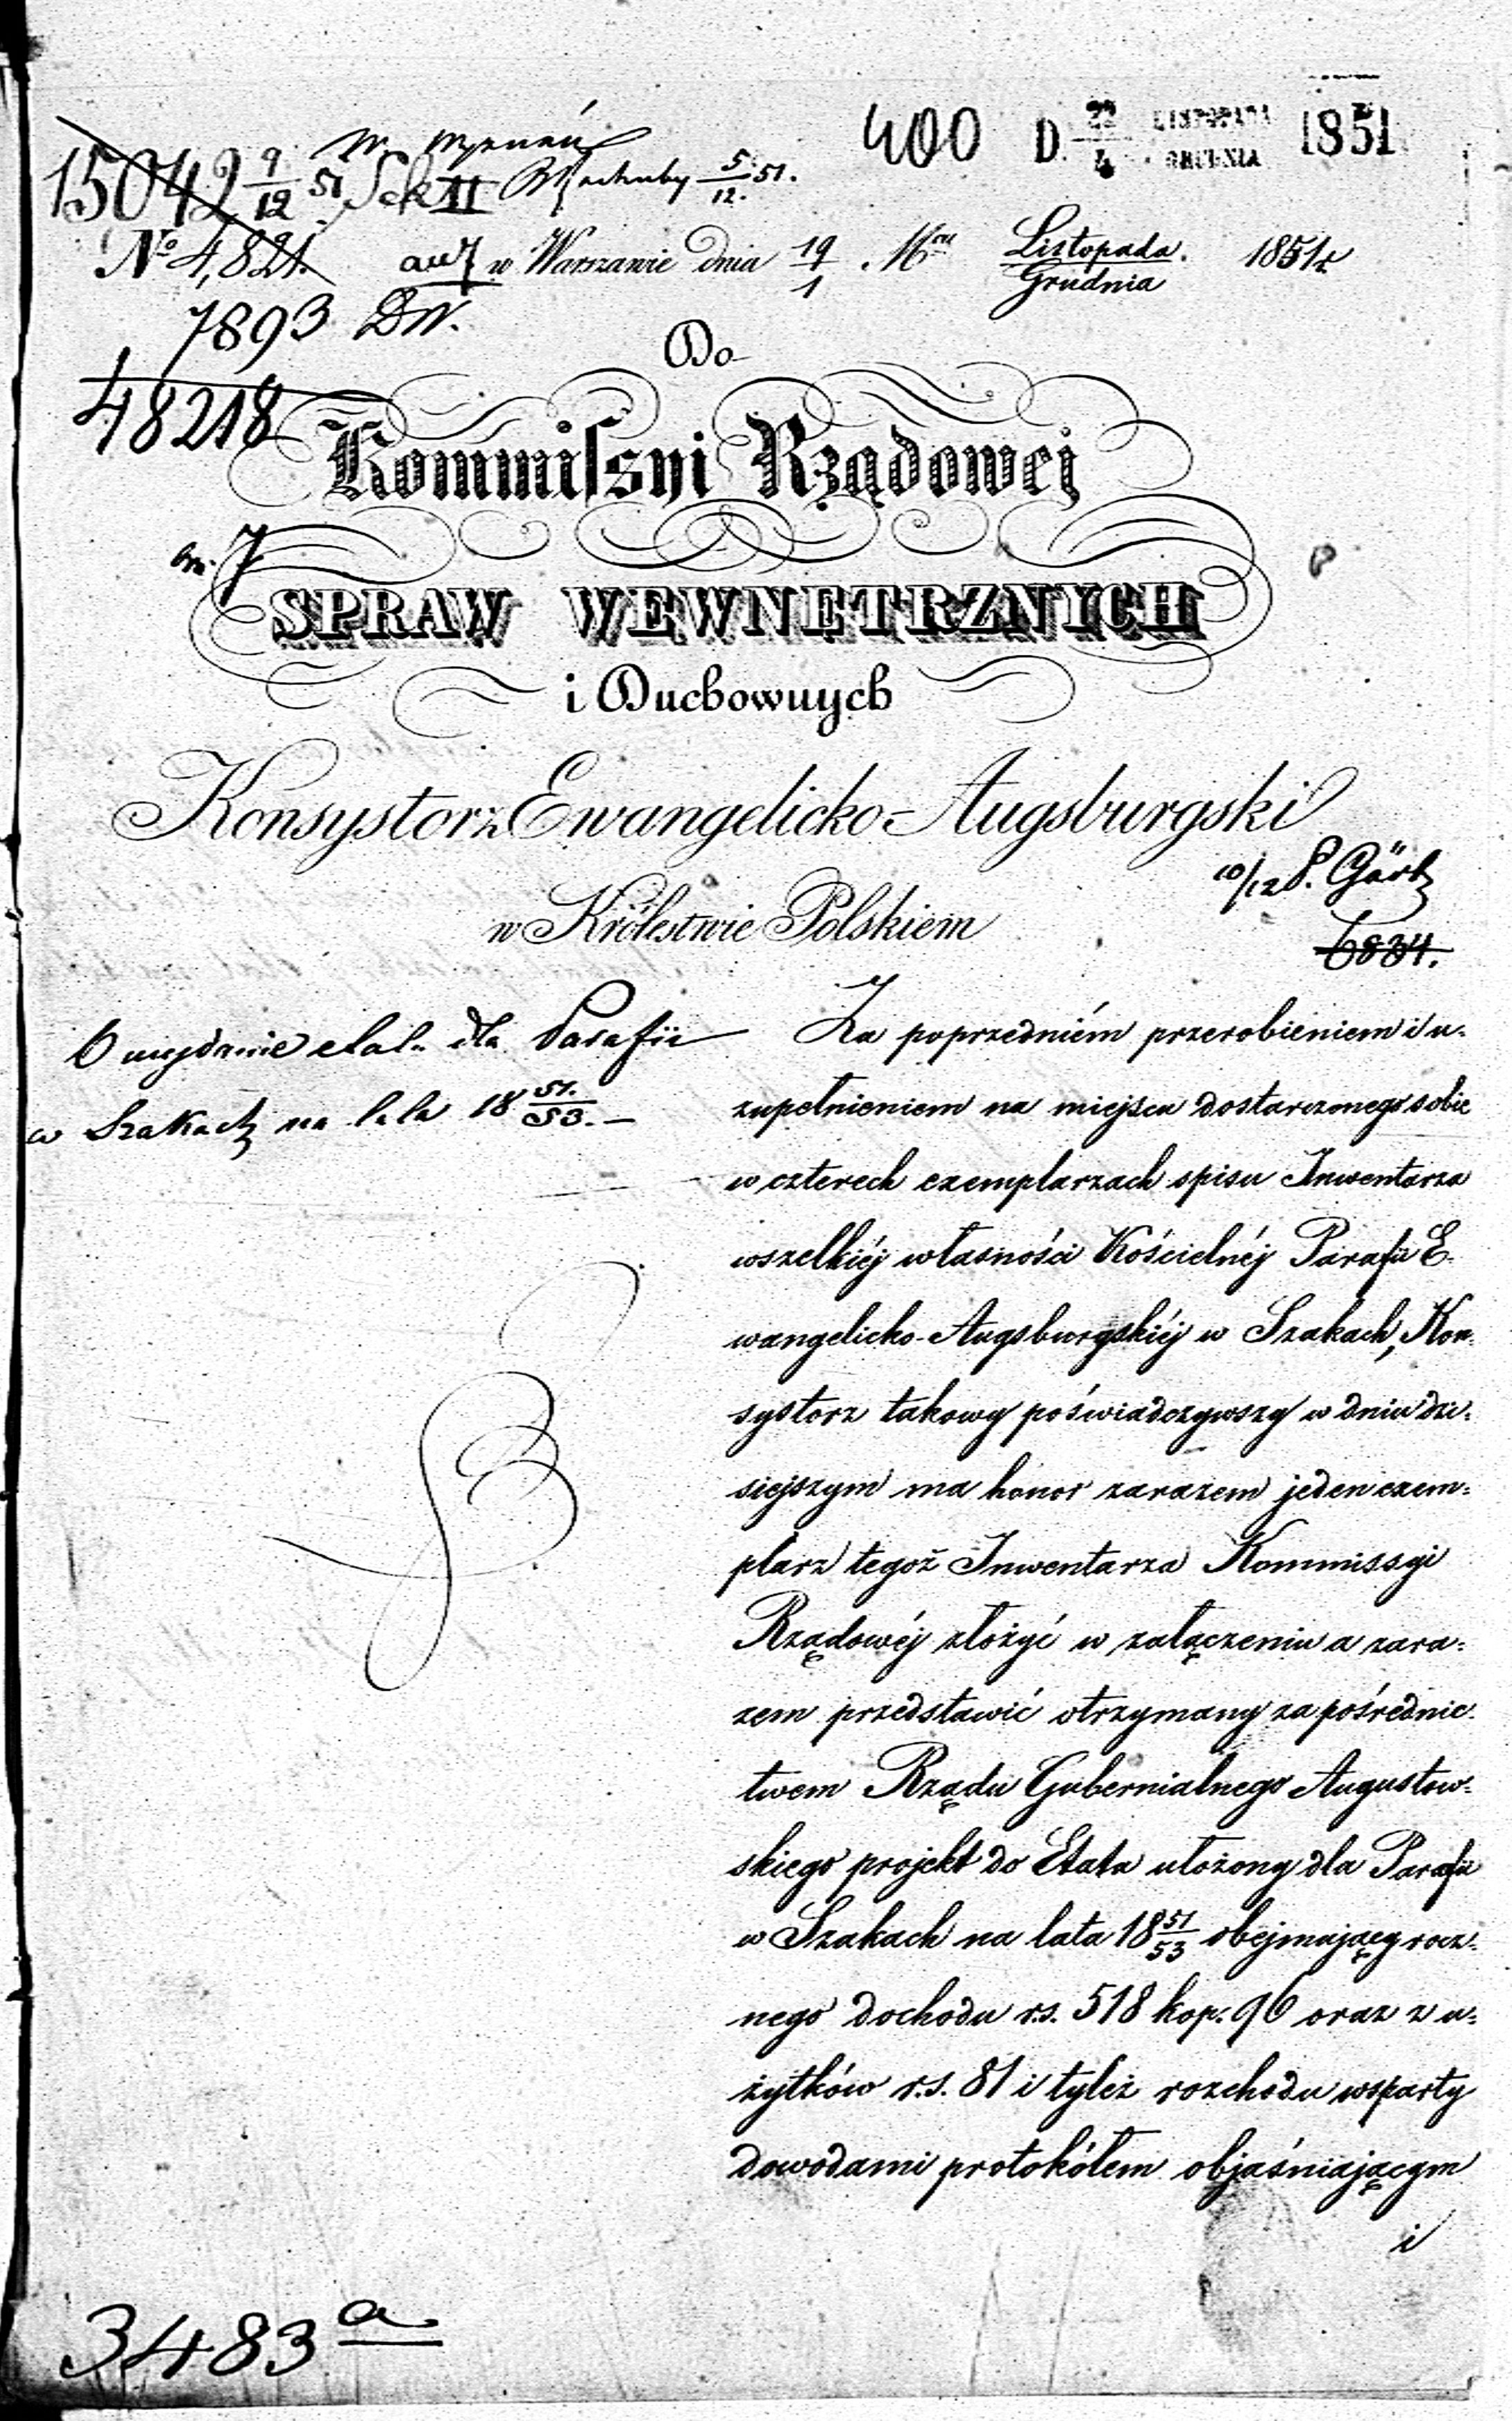 400 D. 22/4 LISTOPADA/GRUDNIA 1851
15042 9/12 51 Sek II 5/12. 51.
No 4,821. w Warszawie dnia 19/1 Mca Listopada/Grudnia 1851 r.
7893 DW.
48218
Do
Kommissyi Rządowej
7
SPRAW WEWNĘTRZNYCH
i Duchownych
Konsystorz Ewangelicko-Augsburgski
w Królestwie Polskiem
10/12 P. Gärtz
6834.
O wydanie etatu dla Parafii
w Szakach na lata 18 51./53. –
Za poprzedniém przerobieniem i u-
zupełnieniem na miejscu dostarczonego sobie
w czterech exemplarzach spisu Inwentarza
wszelkiéj własności Kościelnéj Parafii E-
wangelicko-Augsburgskiéj w Szakach, Kon-
systorz takowy poświadczywszy w dniu dzi-
siejszym ma honor zarazem jeden exem-
plarz tegoż Inwentarza Kommissyi
Rządowéj złożyć w załączeniu a zara-
zem przedstawić otrzymany za pośrednic-
twem Rządu Gubernialnego Augustow-
skiego projekt do Etatu ułożony dla Parafii
w Szakach na lata 18 51/53 obejmujący rocz-
nego dochodu r.s. 518 kop. 96 oraz z u-
żytków r.s. 81 i tyleż rozchodu wsparty
dowodami protokółem objaśniającym
i
3483 a